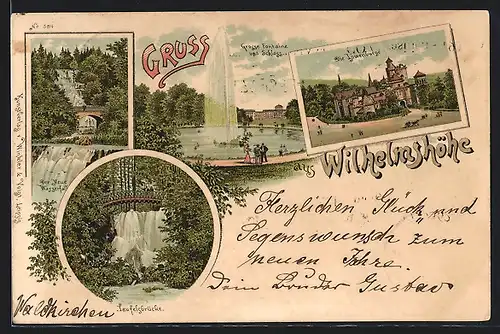 No. 584
GRUSS
Grosse Fontaine
und Schloss.
Die Löwenburg.
Der Neue
Wasserfall.
aus Wilhelmshöhe
Herzlichen Glück und
Segenswunsch zum
neuen Jahre.
Dein Bruder Gustav
Waldkirchen
Teufelsbrücke.